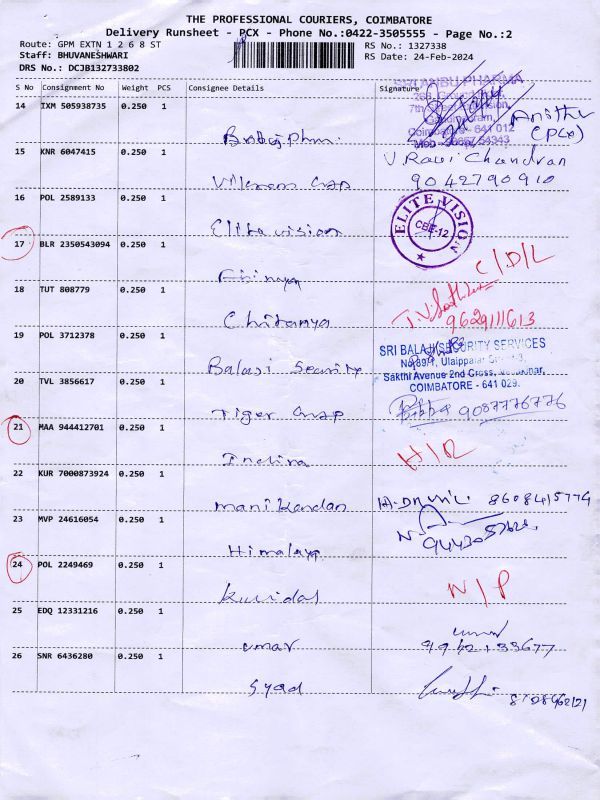 THE PROFESSIONAL COURIERS, COIMBATORE
Delivery Runsheet - PCX - Phone No.:0422-3505555 - Page No.:2
Route: GPM EXTN 1 2 6 8 ST
RS No.: 1327338
Staff: BHUVANESHWARI
RS Date: 24-Feb-2024
DRS No: DCJB132733802
S No Consignment No Weight PCS Consignee Details Signature
14 IXM 505938735 0.250 1
SRI ANBU PHARMA
Coimbatore - 641 012
(PCX)
15 KNR 6047415 0.250 1
V. Ravi Chandran
9042790910
16 POL 2589133 0.250 1 Elite vision
ELITE VISION
CBE-12
17 BLR 2350543094 0.250 1 Abinaya
C/D/L
18 TUT 808779 0.250 1 Chitanya
9629111613
19 POL 3712378 0.250 1 Balaji Security
SRI BALAJI SECURITY SERVICES
Sakthi Avenue 2nd Cross,
COIMBATORE - 641 029.
20 TVL 3856617 0.250 1 Tiger
9087776776
21 MAA 944412701 0.250 1 Indira
H/R
22 KUR 7000873924 0.250 1 manikandan
8608415774
23 MVP 24616054 0.250 1 Himalaya
24 POL 2249469 0.250 1
N/P
25 EDQ 12331216 0.250 1 umar
26 SNR 6436280 0.250 1 Syed